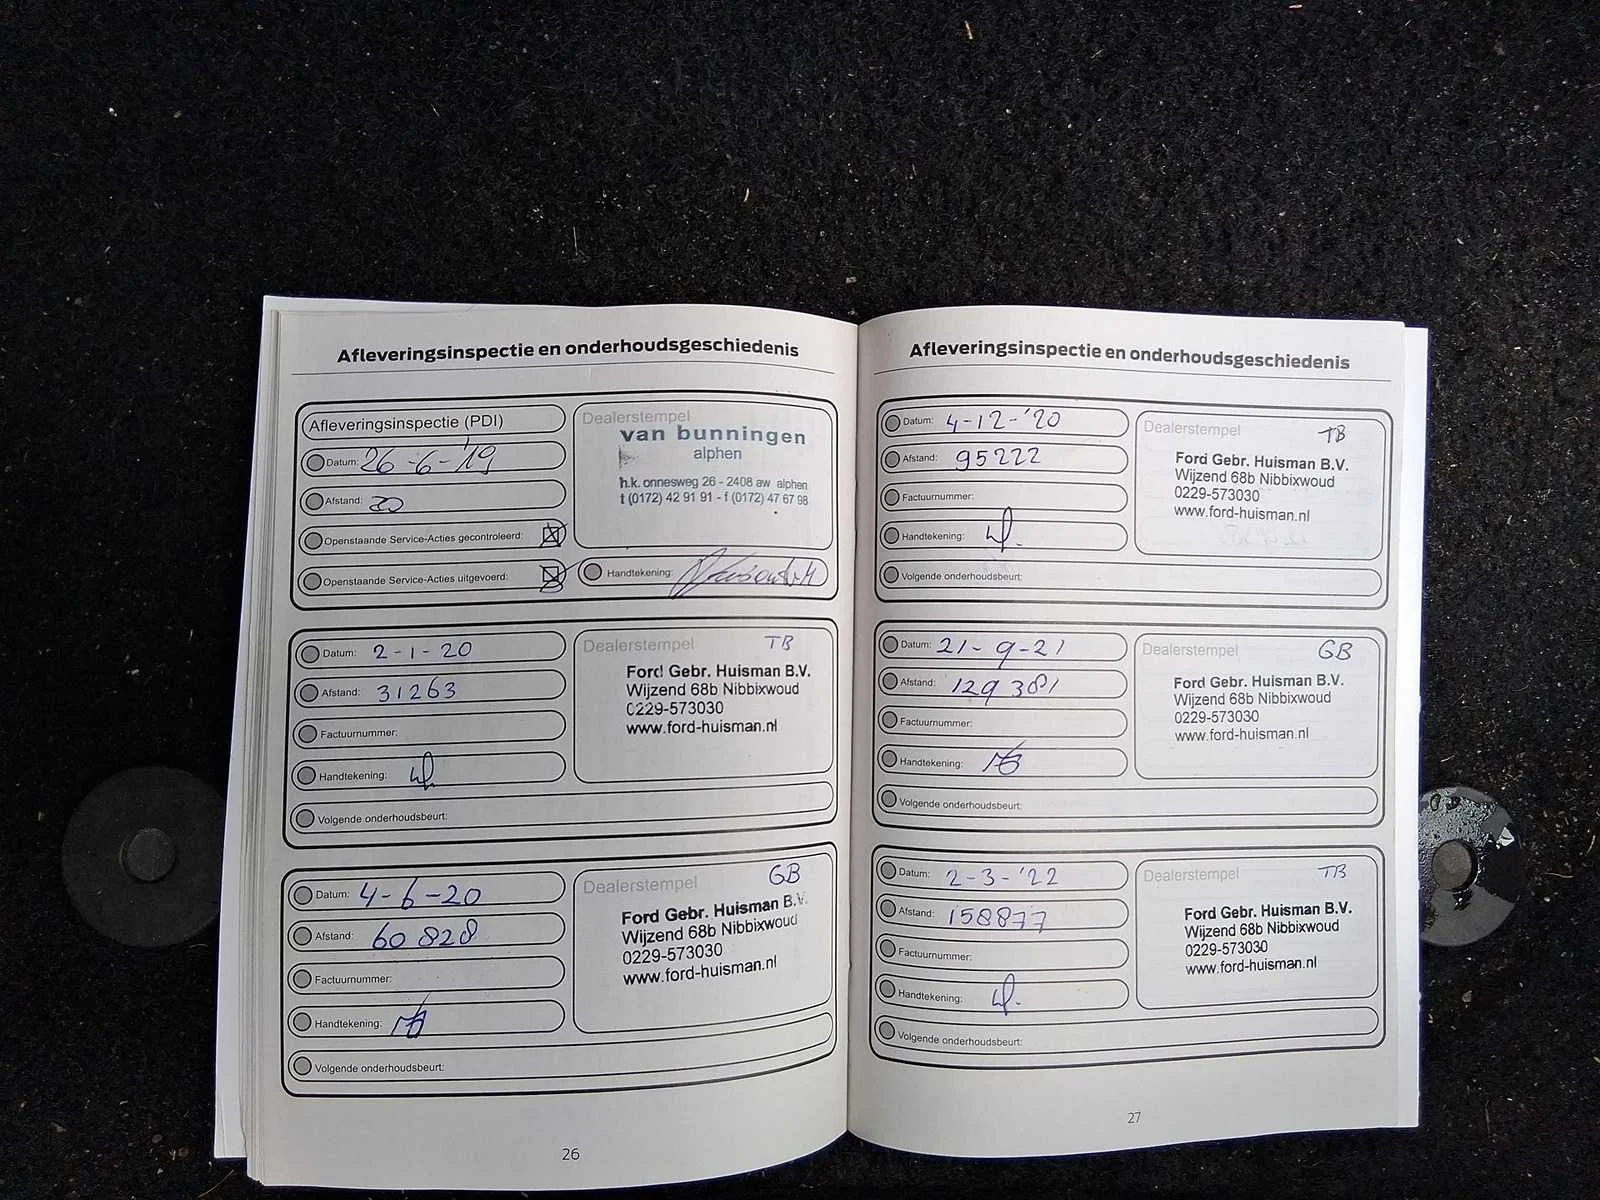 Afleveringsinspectie en onderhoudsgeschiedenis
Afleveringsinspectie (PDI)
Datum: 26-6-'19
Afstand: 20
Openstaande Service-Acties gecontroleerd:
Openstaande Service-Acties uitgevoerd:
Dealerstempel
van bunningen
alphen
h.k. onnesweg 26 - 2408 aw alphen
t (0172) 42 91 91 - f (0172) 47 67 98
Handtekening:
Datum: 2-1-20
Afstand: 31263
Factuurnummer:
Handtekening:
Volgende onderhoudsbeurt:
Dealerstempel TB
Ford Gebr. Huisman B.V.
Wijzend 68b Nibbixwoud
0229-573030
www.ford-huisman.nl
Datum: 4-6-20
Afstand: 60828
Factuurnummer:
Handtekening:
Volgende onderhoudsbeurt:
Dealerstempel GB
Ford Gebr. Huisman B.V.
Wijzend 68b Nibbixwoud
0229-573030
www.ford-huisman.nl
26
Afleveringsinspectie en onderhoudsgeschiedenis
Datum: 4-12-'20
Afstand: 95222
Factuurnummer:
Handtekening:
Volgende onderhoudsbeurt:
Dealerstempel TB
Ford Gebr. Huisman B.V.
Wijzend 68b Nibbixwoud
0229-573030
www.ford-huisman.nl
Datum: 21-9-21
Afstand: 129381
Factuurnummer:
Handtekening:
Volgende onderhoudsbeurt:
Dealerstempel GB
Ford Gebr. Huisman B.V.
Wijzend 68b Nibbixwoud
0229-573030
www.ford-huisman.nl
Datum: 2-3-'22
Afstand: 158877
Factuurnummer:
Handtekening:
Volgende onderhoudsbeurt:
Dealerstempel TB
Ford Gebr. Huisman B.V.
Wijzend 68b Nibbixwoud
0229-573030
www.ford-huisman.nl
27